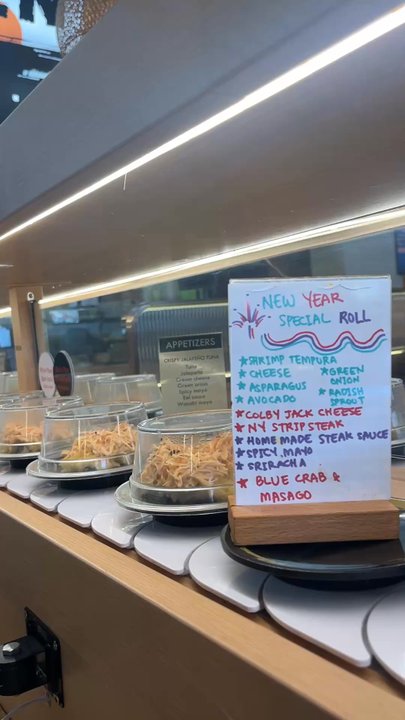 NEW YEAR
SPECIAL ROLL
★ SHRIMP TEMPURA
★ CHEESE
★ ASPARAGUS
★ AVOCADO
★ GREEN
ONION
★ RADISH
SPROUT
★ COLBY JACK CHEESE
★ NY STRIP STEAK
★ HOMEMADE STEAK SAUCE
★ SPICY MAYO
★ SRIRACHA
★ BLUE CRAB &
MASAGO
APPETIZERS
CRISPY JALAPEÑO TUNA
Tuna
Jalapeño
Cream cheese
Green onion
Spicy mayo
Eel sauce
Wasabi mayo